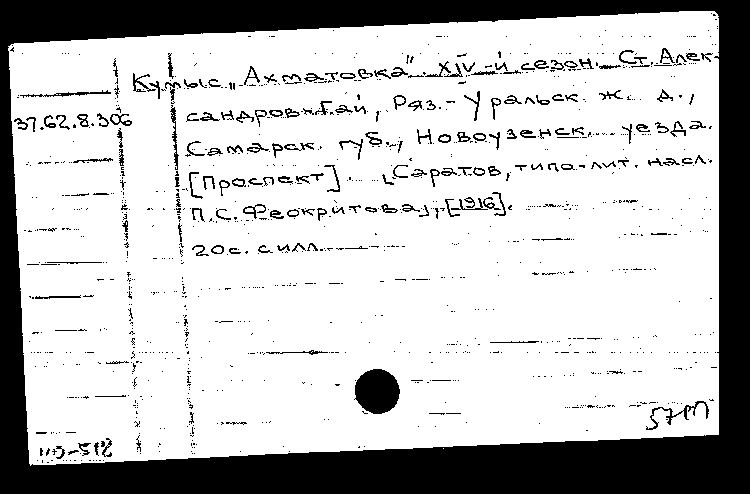 Кумыс „Ахматовка". XIV-й сезон. Ст. Алек-
сандров-Гай, Ряз.-Уральск. ж. д.,
37.62.8.306
Самарск. губ., Новоузенск. уезда.
[Проспект]. [Саратов, типо-лит. насл.
П.С. Феокритова], [1916].
20 с. с илл.